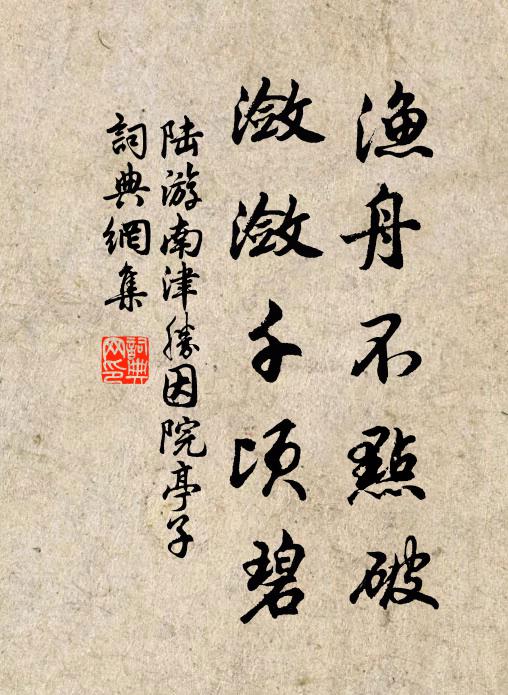 漁舟不點破
瀲瀲千頃碧
陸游南津勝因院亭子
詞典網集
詞典
网印